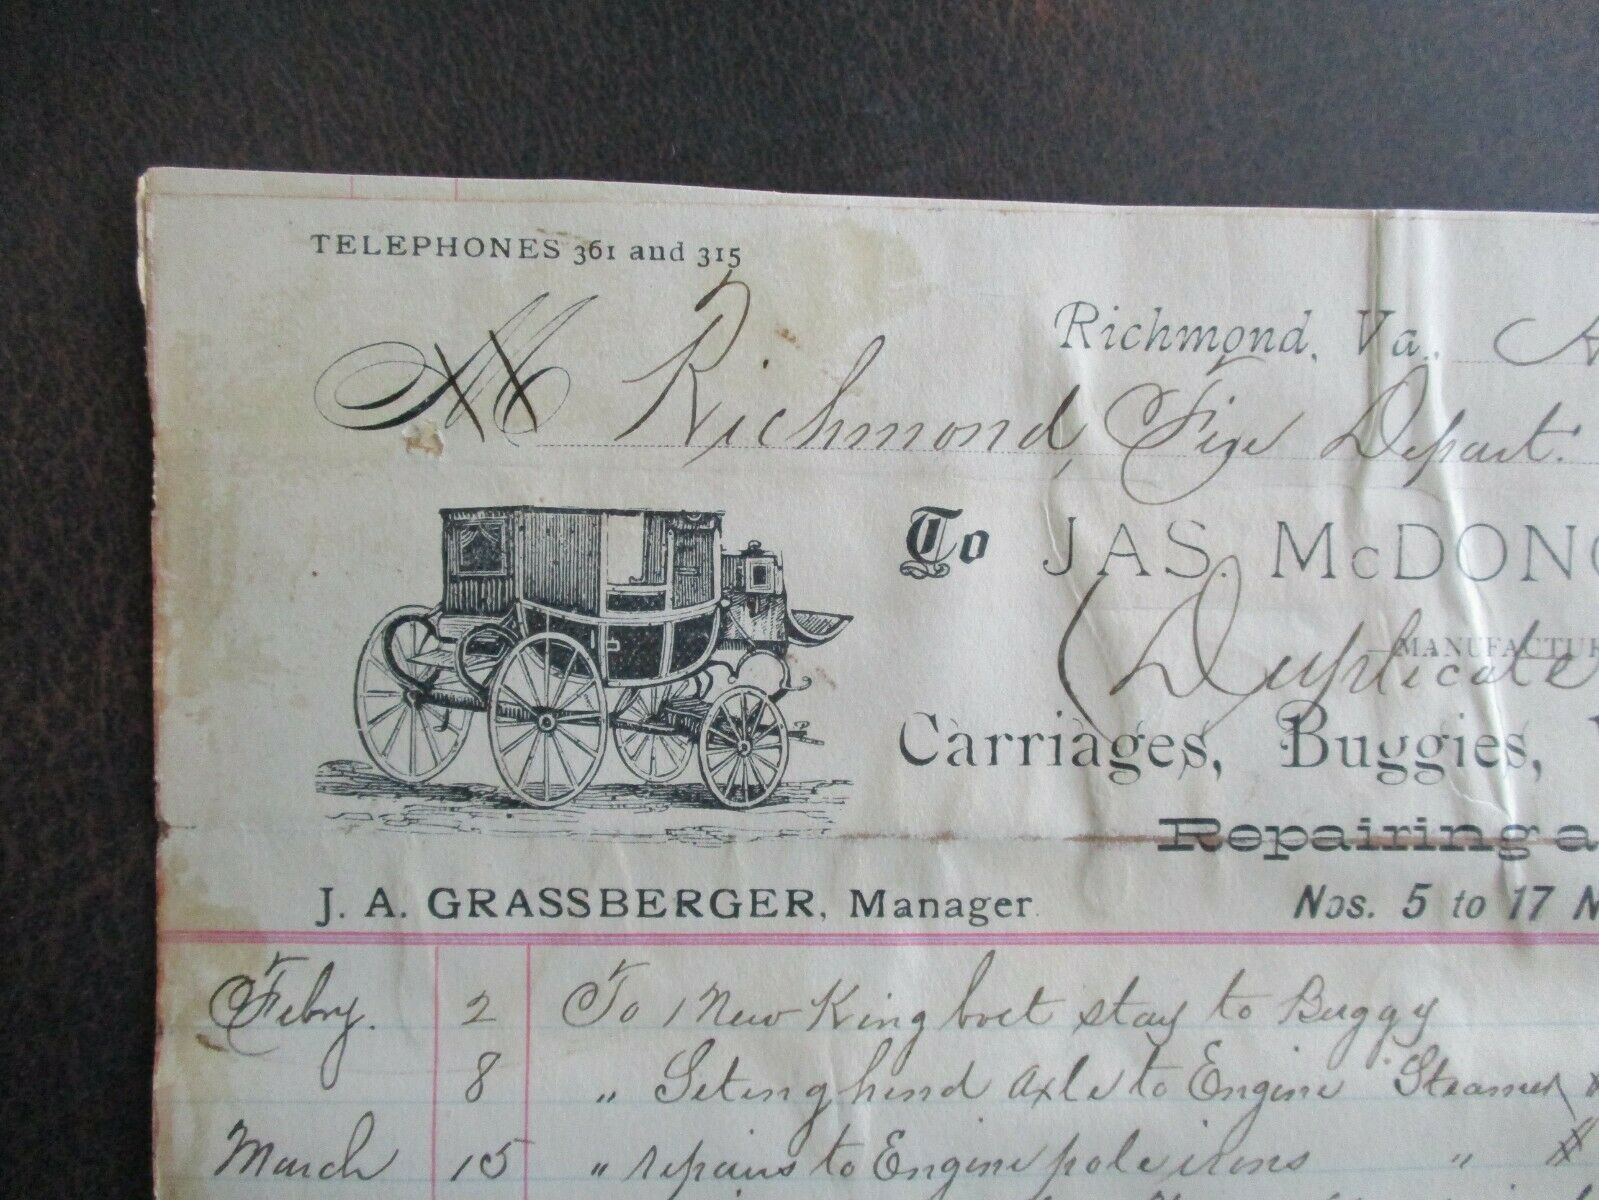 TELEPHONES 361 and 315
Richmond, Va.,
M Richmond, Fire Depart.
To JAS. McDONO
(Duplicate
MANUFACTUR
Carriages, Buggies,
Repairing a
J. A. GRASSBERGER, Manager. Nos. 5 to 17 N
Febry. 2 To 1 New King bolt stay to Buggy
8 " Seting hind axle to Engine "Steamer
March 15 " repairs to Engine pole irons "